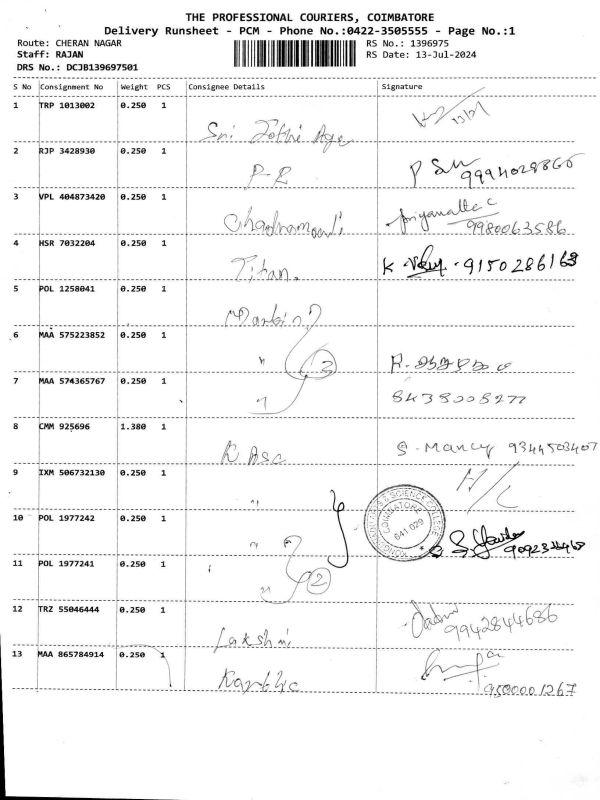 THE PROFESSIONAL COURIERS, COIMBATORE
Delivery Runsheet - PCM - Phone No.:0422-3505555 - Page No.:1
Route: CHERAN NAGAR RS No.: 1396975
Staff: RAJAN RS Date: 13-Jul-2024
DRS No.: DCJB139697501
S No Consignment No Weight PCS Consignee Details Signature
1 TRP 1013002 0.250 1
Sri
2 RJP 3428930 0.250 1
P-R 9994028866
3 VPL 404873420 0.250 1
9980063586
4 HSR 7032204 0.250 1
Titan. K 9150286163
5 POL 1258041 0.250 1
6 MAA 575223852 0.250 1
" 3 R.
7 MAA 574365767 0.250 1
" 8438008277
8 CMM 925696 1.380 1
K Asc S. Mancy 9344503407
9 IXM 506732130 0.250 1
" N/C
10 POL 1977242 0.250 1
" COIMBATORE 641 029
11 POL 1977241 0.250 1
" 2
12 TRZ 55046444 0.250 1
Lakshmi 9942844686
13 MAA 865784914 0.250 1
9500001267